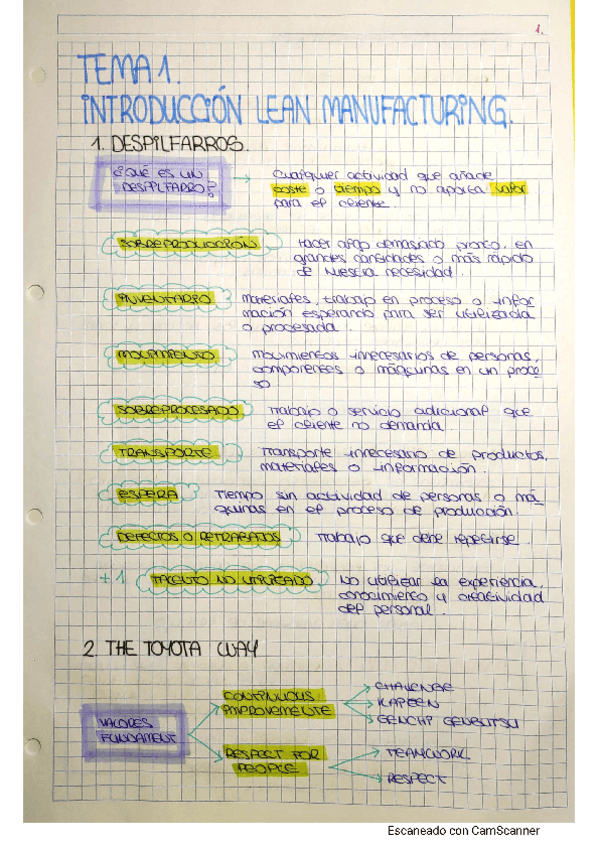 1.
TEMA 1.
INTRODUCCIÓN LEAN MANUFACTURING.
1. DESPILFARROS.
¿QUÉ ES UN
DESPILFARRO?
Cualquier actividad que añade
coste o tiempo y no aporta valor
para el cliente.
SOBREPRODUCCIÓN
Hacer algo demasiado pronto, en
grandes cantidades o más rápido
de nuestra necesidad.
INVENTARIO
Materiales, trabajo en proceso o infor
mación esperando para ser utilizada
o procesada.
MOVIMIENTO
Movimientos innecesarios de personas,
componentes o máquinas en un proce
so
SOBREPROCESADO
Trabajo o servicio adicional que
el cliente no demanda.
TRANSPORTE
Transporte innecesario de productos,
materiales o información.
ESPERA
Tiempo sin actividad de personas o má-
quinas en el proceso de producción.
DEFECTOS O RETRABAJOS
Trabajo que debe repetirse.
+1
TALENTO NO UTILIZADO
No utilizar la experiencia,
conocimiento y creatividad
del personal.
2. THE TOYOTA WAY
VALORES
FUNDAMENT
CONTINUOUS
IMPROVEMENTE
CHALLENGE
KAPEEN
GENCHI GENBUTSU
RESPECT FOR
PEOPLE
TEAMWORK
RESPECT
Escaneado con CamScanner